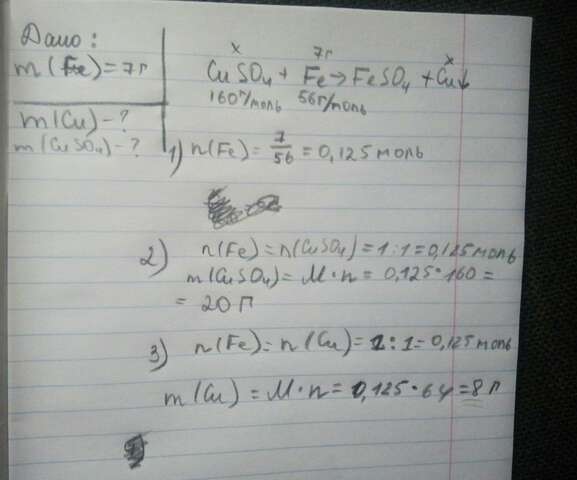 Дано:
m(Fe)=7г
m(Cu)-?
m(CuSO4)-?
x 7г x
CuSO4 + Fe → FeSO4 + Cu↓
160г/моль 56г/моль
1) n(Fe) = 7/56 = 0,125 моль
2) n(Fe)=n(CuSO4)=1:1=0,125 моль
m(CuSO4)= M·n = 0,125·160 =
= 20 г
3) n(Fe)=n(Cu)=1:1=0,125 моль
m(Cu) = M·n = 0,125·64 = 8 г